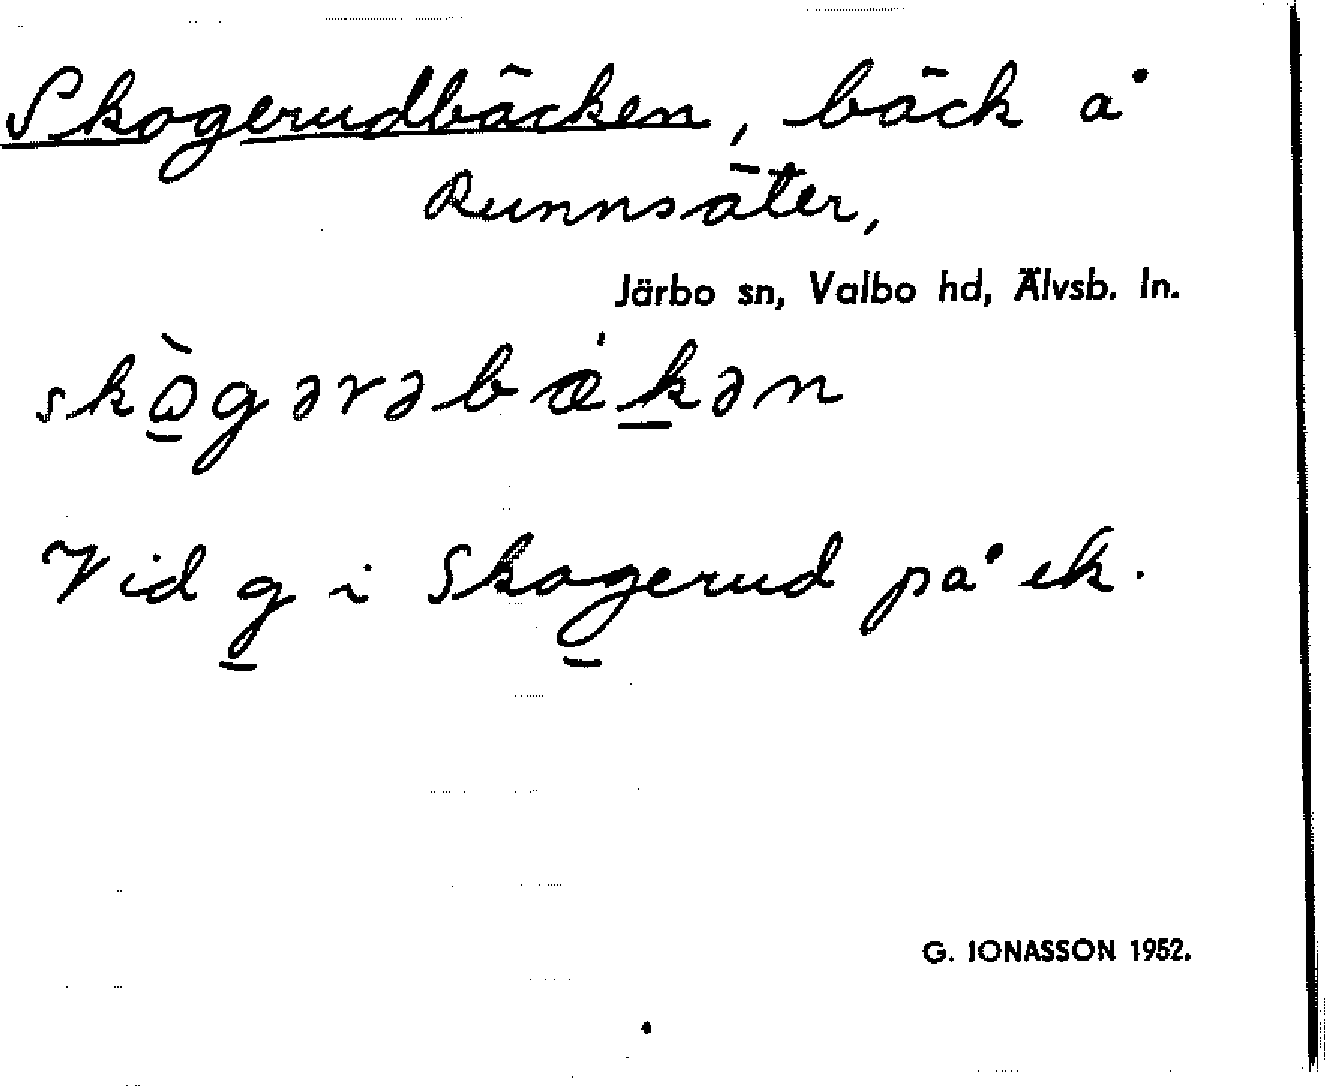 Skogerudbäcken, bäck å
Runnsäter,
Järbo sn, Valbo hd, Älvsb. ln.
skὼ̱gərəbǽḵən
Vid g̱ i Skog̱erud på ek.
G. IONASSON 1952.